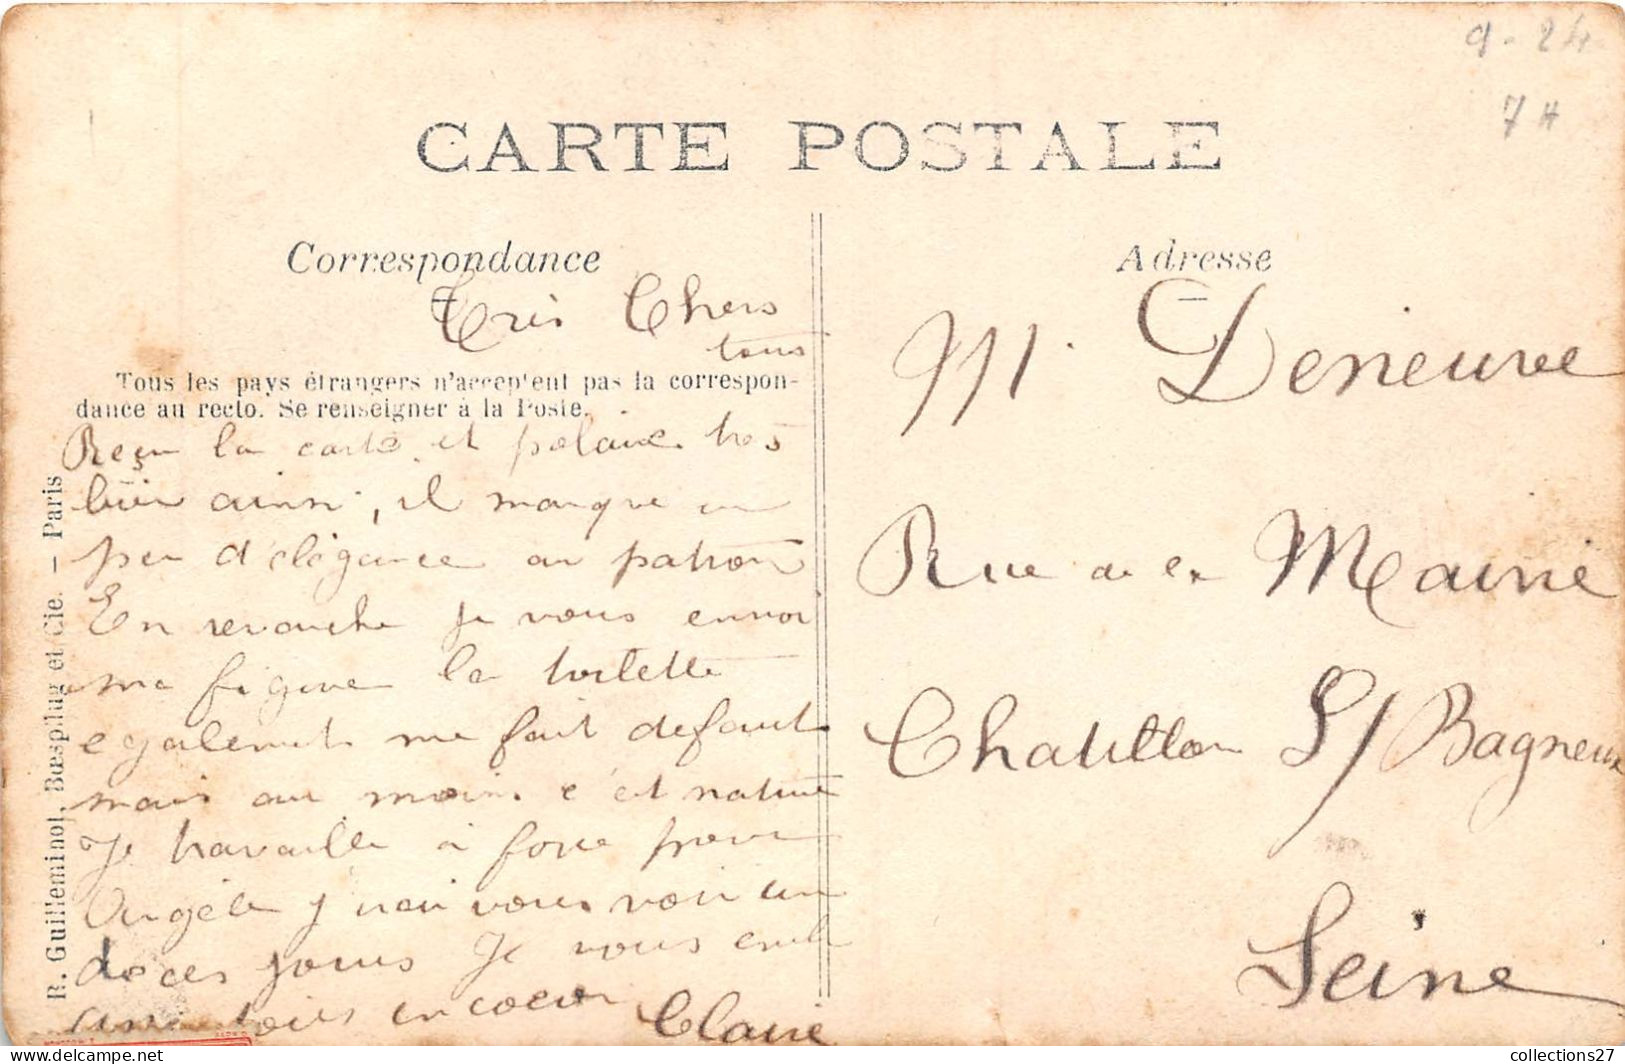 9-24
7H
CARTE POSTALE
Correspondance
Très Chers
tous
Tous les pays étrangers n'acceptent pas la correspon-
dance au recto. Se renseigner à la Poste.
Reçu la carte et très
bien ainsi, il manque un
peu d'élégance au patron
En revanche je vous envoi
ma figure la toilette
egalement me fait defaut
mais au moins c'est nature
Je travaille à force pour
Angèle j'irai vous voir un
de ces jours Je vous
tous en coeur
Claire
R. Guilleminot, Bœsplug et Cie. — Paris
Adresse
M. Deneuve
Rue de la Mairie
Chatillon S/ Bagneux
Seine
collections27